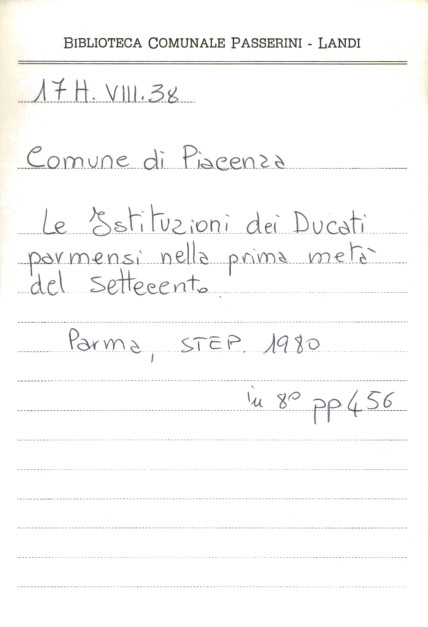 BIBLIOTECA COMUNALE PASSERINI - LANDI
17 H. VIII. 38
Comune di Piacenza
Le Istituzioni dei Ducati
parmensi nella prima metà
del Settecento
Parma, STEP. 1980
in 8º pp 456